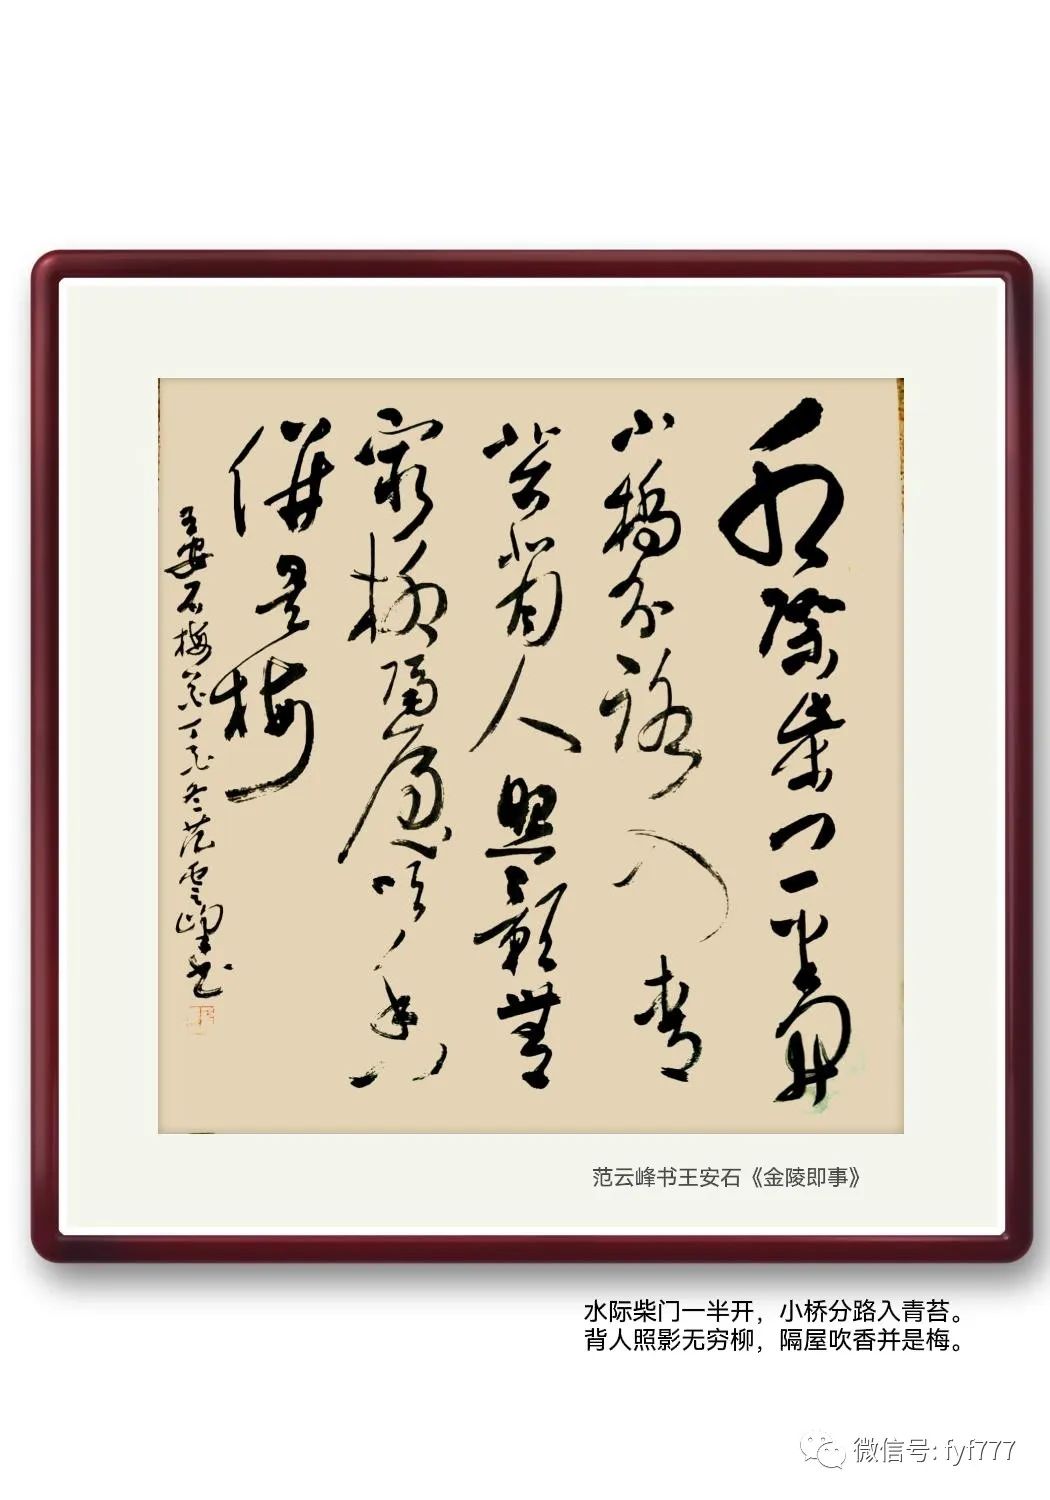 水際柴門一半開
小橋分路入青
苔背人照影無
窮柳隔屋吹香
併是梅
王安石梅花丁酉冬范雲峰書
范云峰书王安石《金陵即事》
水际柴门一半开，小桥分路入青苔。
背人照影无穷柳，隔屋吹香并是梅。
微信号: fyf777